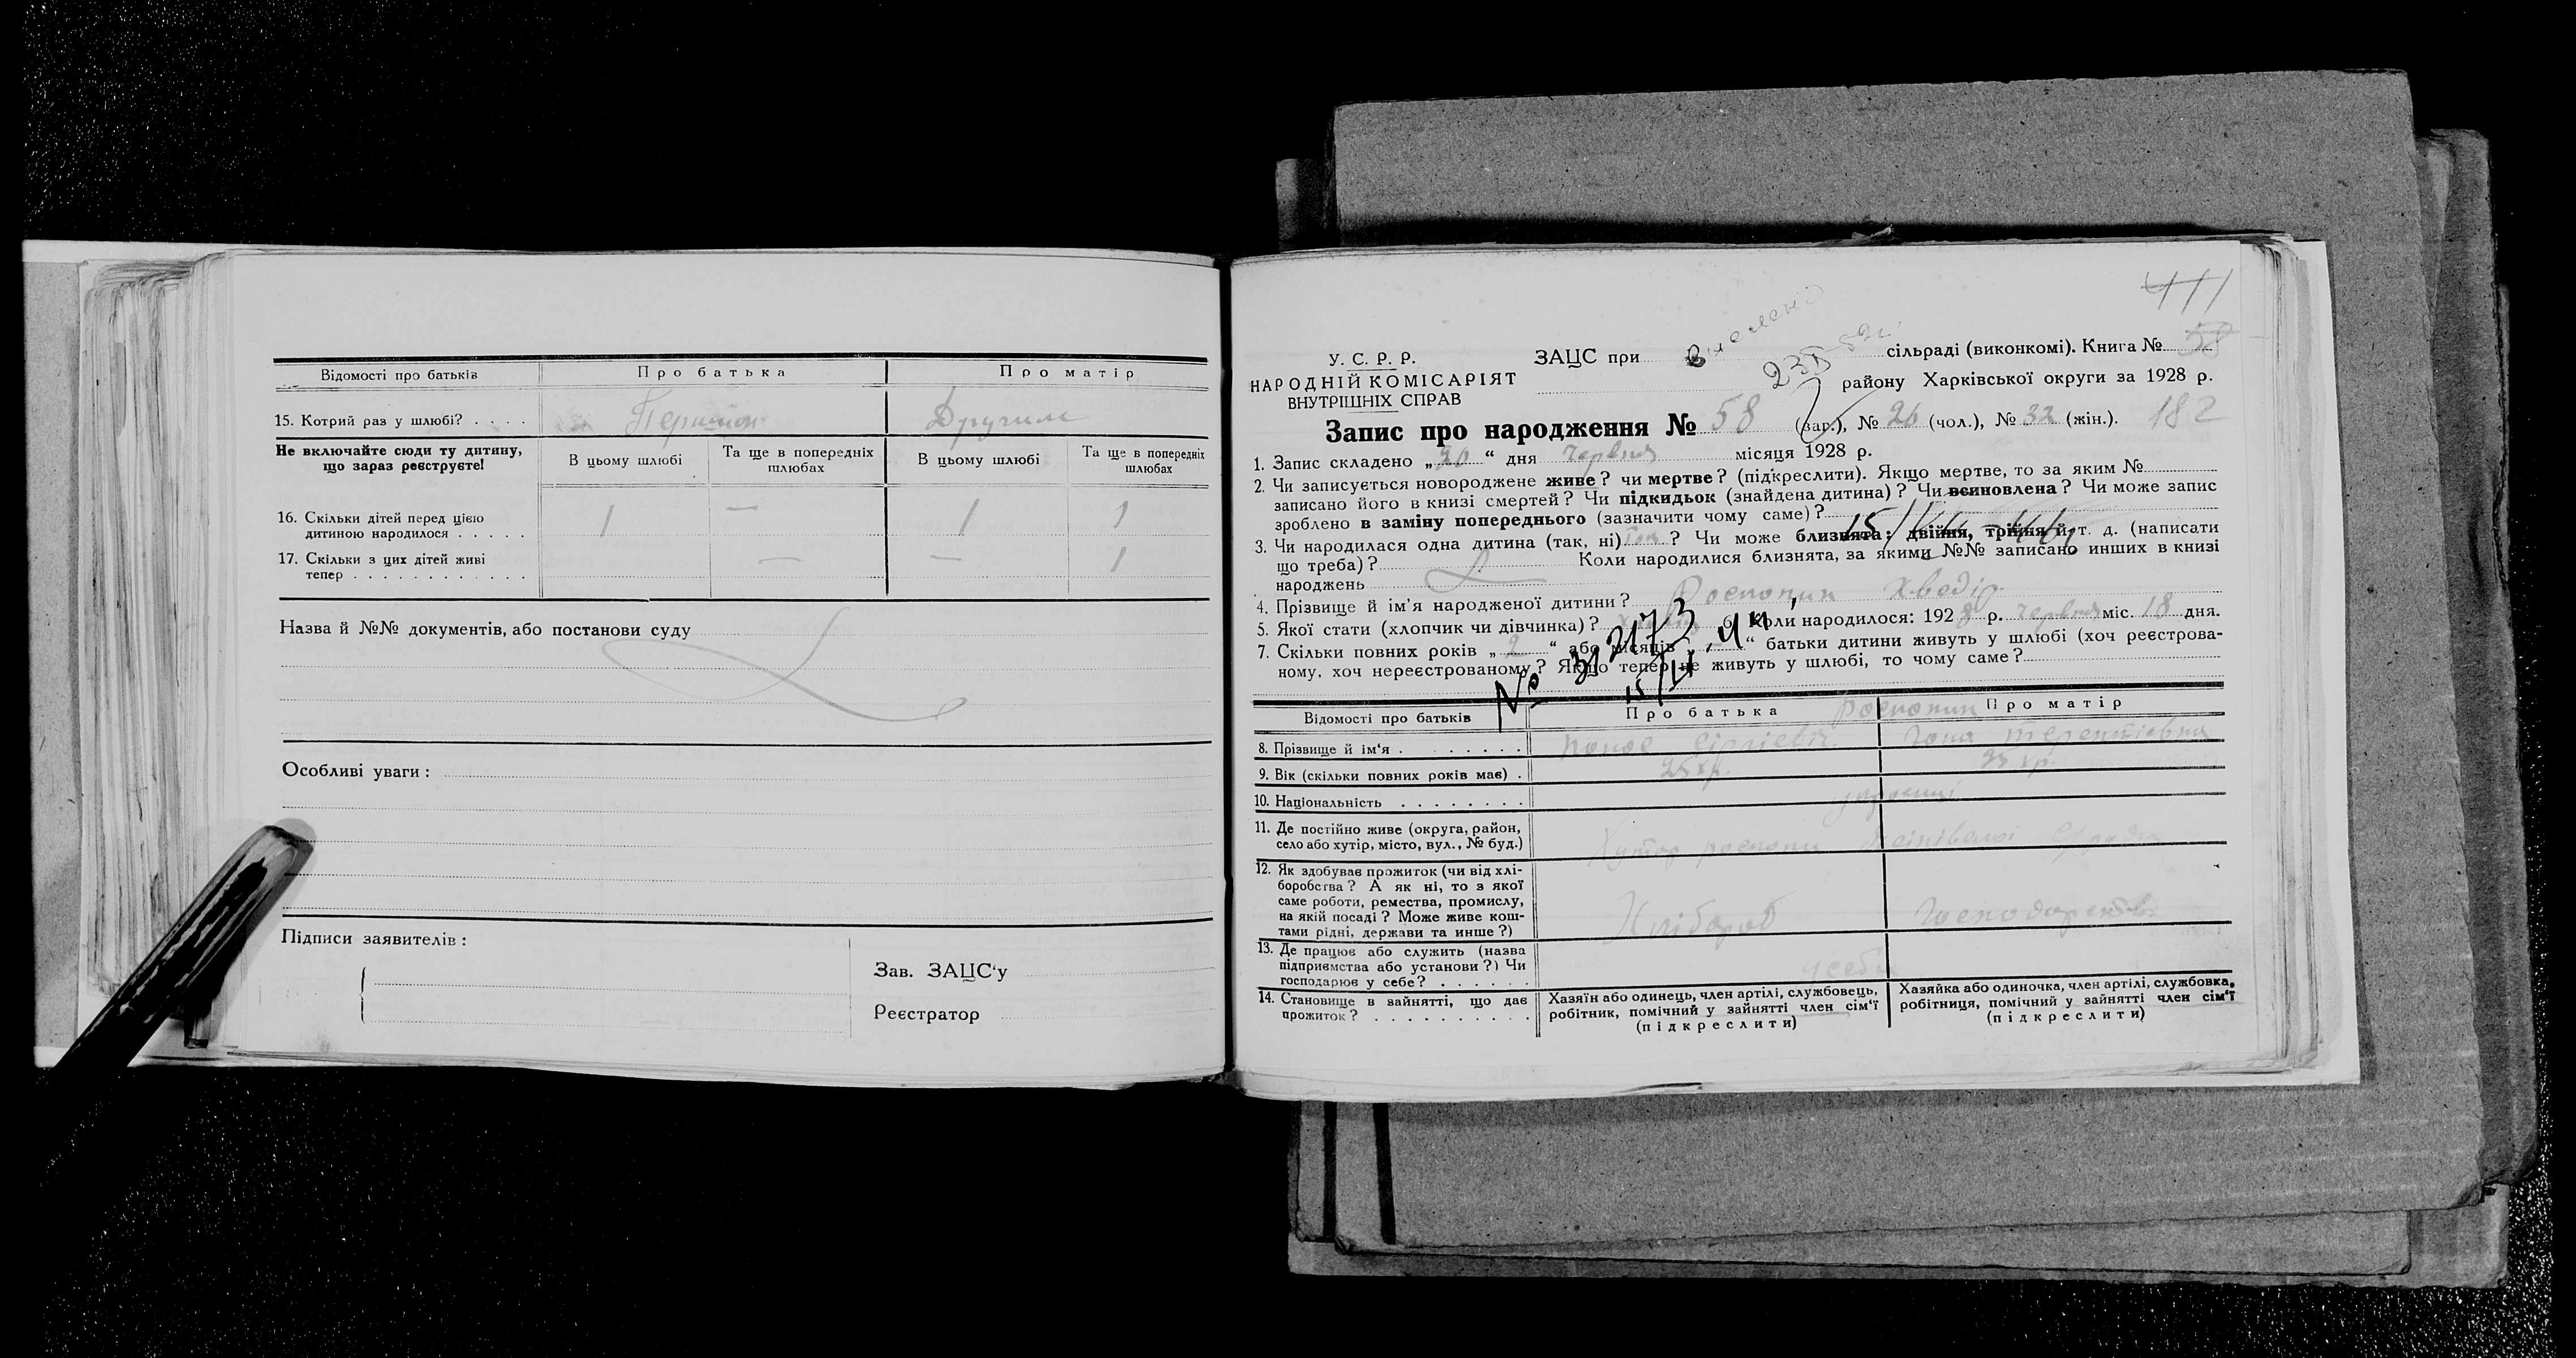 Відомості про батьків Про батька Про матір
15. Котрий раз у шлюбі? . . . . Першим Другим
Не включайте сюди ту дитину, що зараз реєструєте!
В цьому шлюбі Та ще в попередніх шлюбах В цьому шлюбі Та ще в попередніх шлюбах
16. Скільки дітей перед цією
дитиною народилося . . . . . 1 — 1 1
17. Скільки з цих дітей живі
тепер . . . . . . . . . . . . — — 1
Назва й №№ документів, або постанови суду
Особливі уваги :
Підписи заявителів :
Зав. ЗАЦС‘у
Реєстратор
411
У. С. Р. Р.
НАРОДНІЙ КОМІСАРІЯТ
ВНУТРІШНІХ СПРАВ
ЗАЦС при сільраді (виконкомі). Книга № 58
району Харківської округи за 1928 р.
Запис про народження № 58 (заг.), № 26 (чол.), № 32 (жін.). 182
1. Запис складено „ 20 “ дня червня місяця 1928 р.
2. Чи записується новороджене живе? чи мертве? (підкреслити). Якщо мертве, то за яким №
записано його в книзі смертей? Чи підкидьок (знайдена дитина)? Чи всиновлена? Чи може запис
зроблено в заміну попереднього (зазначити чому саме)?
3. Чи народилася одна дитина (так, ні) ? Чи може близнята: двійня, трійня й т. д. (написати
що треба)? Коли народилися близнята, за якими №№ записано инших в книзі
народжень
4. Прізвище й ім’я народженої дитини? Роспопин Хведір
5. Якої стати (хлопчик чи дівчинка)? 6. Коли народилося: 1928 р. червня міс. 18 дня.
7. Скільки повних років „ 2 “ або місяців „ “ батьки дитини живуть у шлюбі (хоч реєстрова-
ному, хоч нереєстрованому? Якщо тепер не живуть у шлюбі, то чому саме?
№ 32173
15/IV
Відомості про батьків Про батька Роспопин Про матір
8. Прізвище й ім‘я . . . . . . . . Терентіовна
9. Вік (скільки повних років має) . 25 р. 25 р.
10. Національність . . . . . . . .
11. Де постійно живе (округа, район,
село або хутір, місто, вул., № буд.) Хутор
12. Як здобуває прожиток (чи від хлі-
боробства? А як ні, то з якої
саме роботи, ремества, промислу,
на якій посаді? Може живе кош-
тами рідні, держави та инше?) Хлібороб
13. Де працює або служить (назва
підприємства або установи?) Чи
господарює у себе? . . . . . . у себе
14. Становище в зайнятті, що дає
прожиток? . . . . . . . . . .
Хазяїн або одинець, член артілі, службовець,
робітник, помічний у зайнятті член сім‘ї
(підкреслити)
Хазяйка або одиночка, член артілі, службовка,
робітниця, помічний у зайнятті член сім‘ї
(підкреслити)